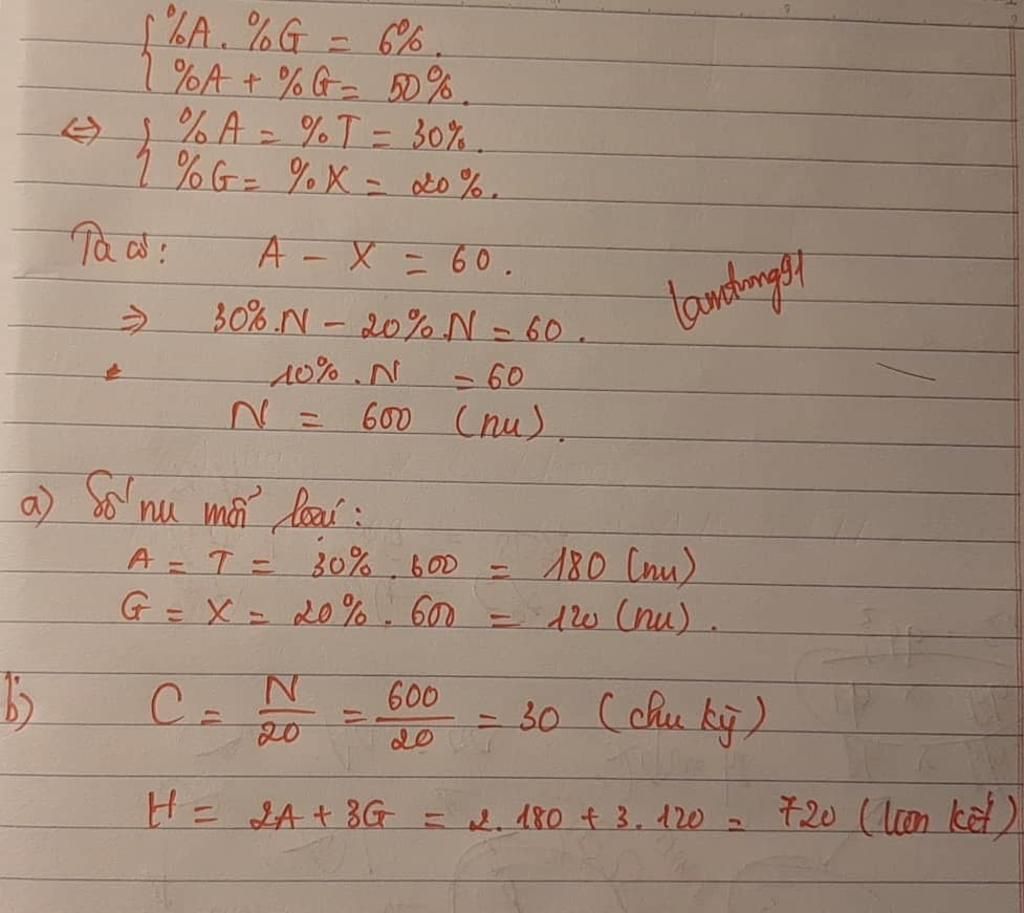 {%A . %G = 6%.
%A + %G = 50%.
⇔ {%A = %T = 30%.
%G = %X = 20%.
Ta có: A - X = 60.
⇒ 30%.N - 20%.N = 60.
10% . N = 60
N = 600 (nu).
lamtung91
a) Số nu mỗi loại:
A = T = 30% . 600 = 180 (nu)
G = X = 20% . 600 = 120 (nu).
b) C = N/20 = 600/20 = 30 (chu kỳ)
H = 2A + 3G = 2. 180 + 3. 120 = 720 (liên kết)